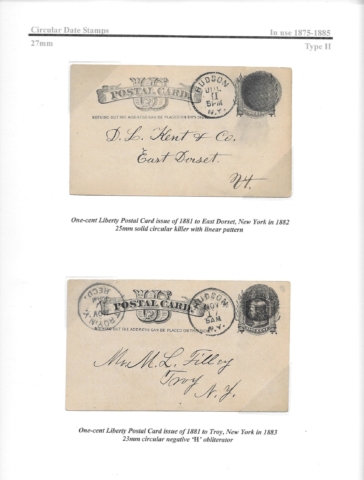 Circular Date Stamps
In use 1875-1885
27mm
Type II
POSTAL CARD.
NOTHING BUT THE ADDRESS CAN BE PLACED ON THIS SIDE
HUDSON
JUL
11
5PM
N.Y.
D. L. Kent & Co.
East Dorset.
Vt.
One-cent Liberty Postal Card issue of 1881 to East Dorset, New York in 1882
25mm solid circular killer with linear pattern
REC'D.
POSTAL CARD.
NOTHING BUT THE ADDRESS CAN BE PLACED ON THIS SIDE
HUDSON
NOV
5AM
N.Y.
M. L. Filley
Troy
N. Y.
One-cent Liberty Postal Card issue of 1881 to Troy, New York in 1883
23mm circular negative 'H' obliterator